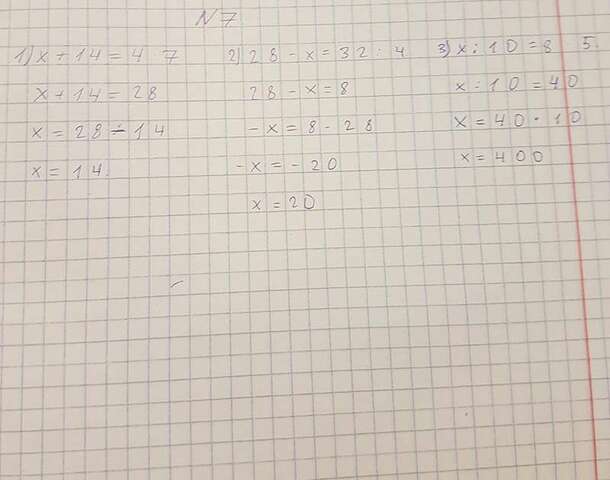 N 7
1) x + 14 = 4 7
x + 14 = 28
x = 28 ÷ 14
x = 14
2) 28 - x = 32 : 4
28 - x = 8
- x = 8 - 28
- x = - 20
x = 20
3) x : 10 = 8 5
x : 10 = 40
x = 40 · 10
x = 400